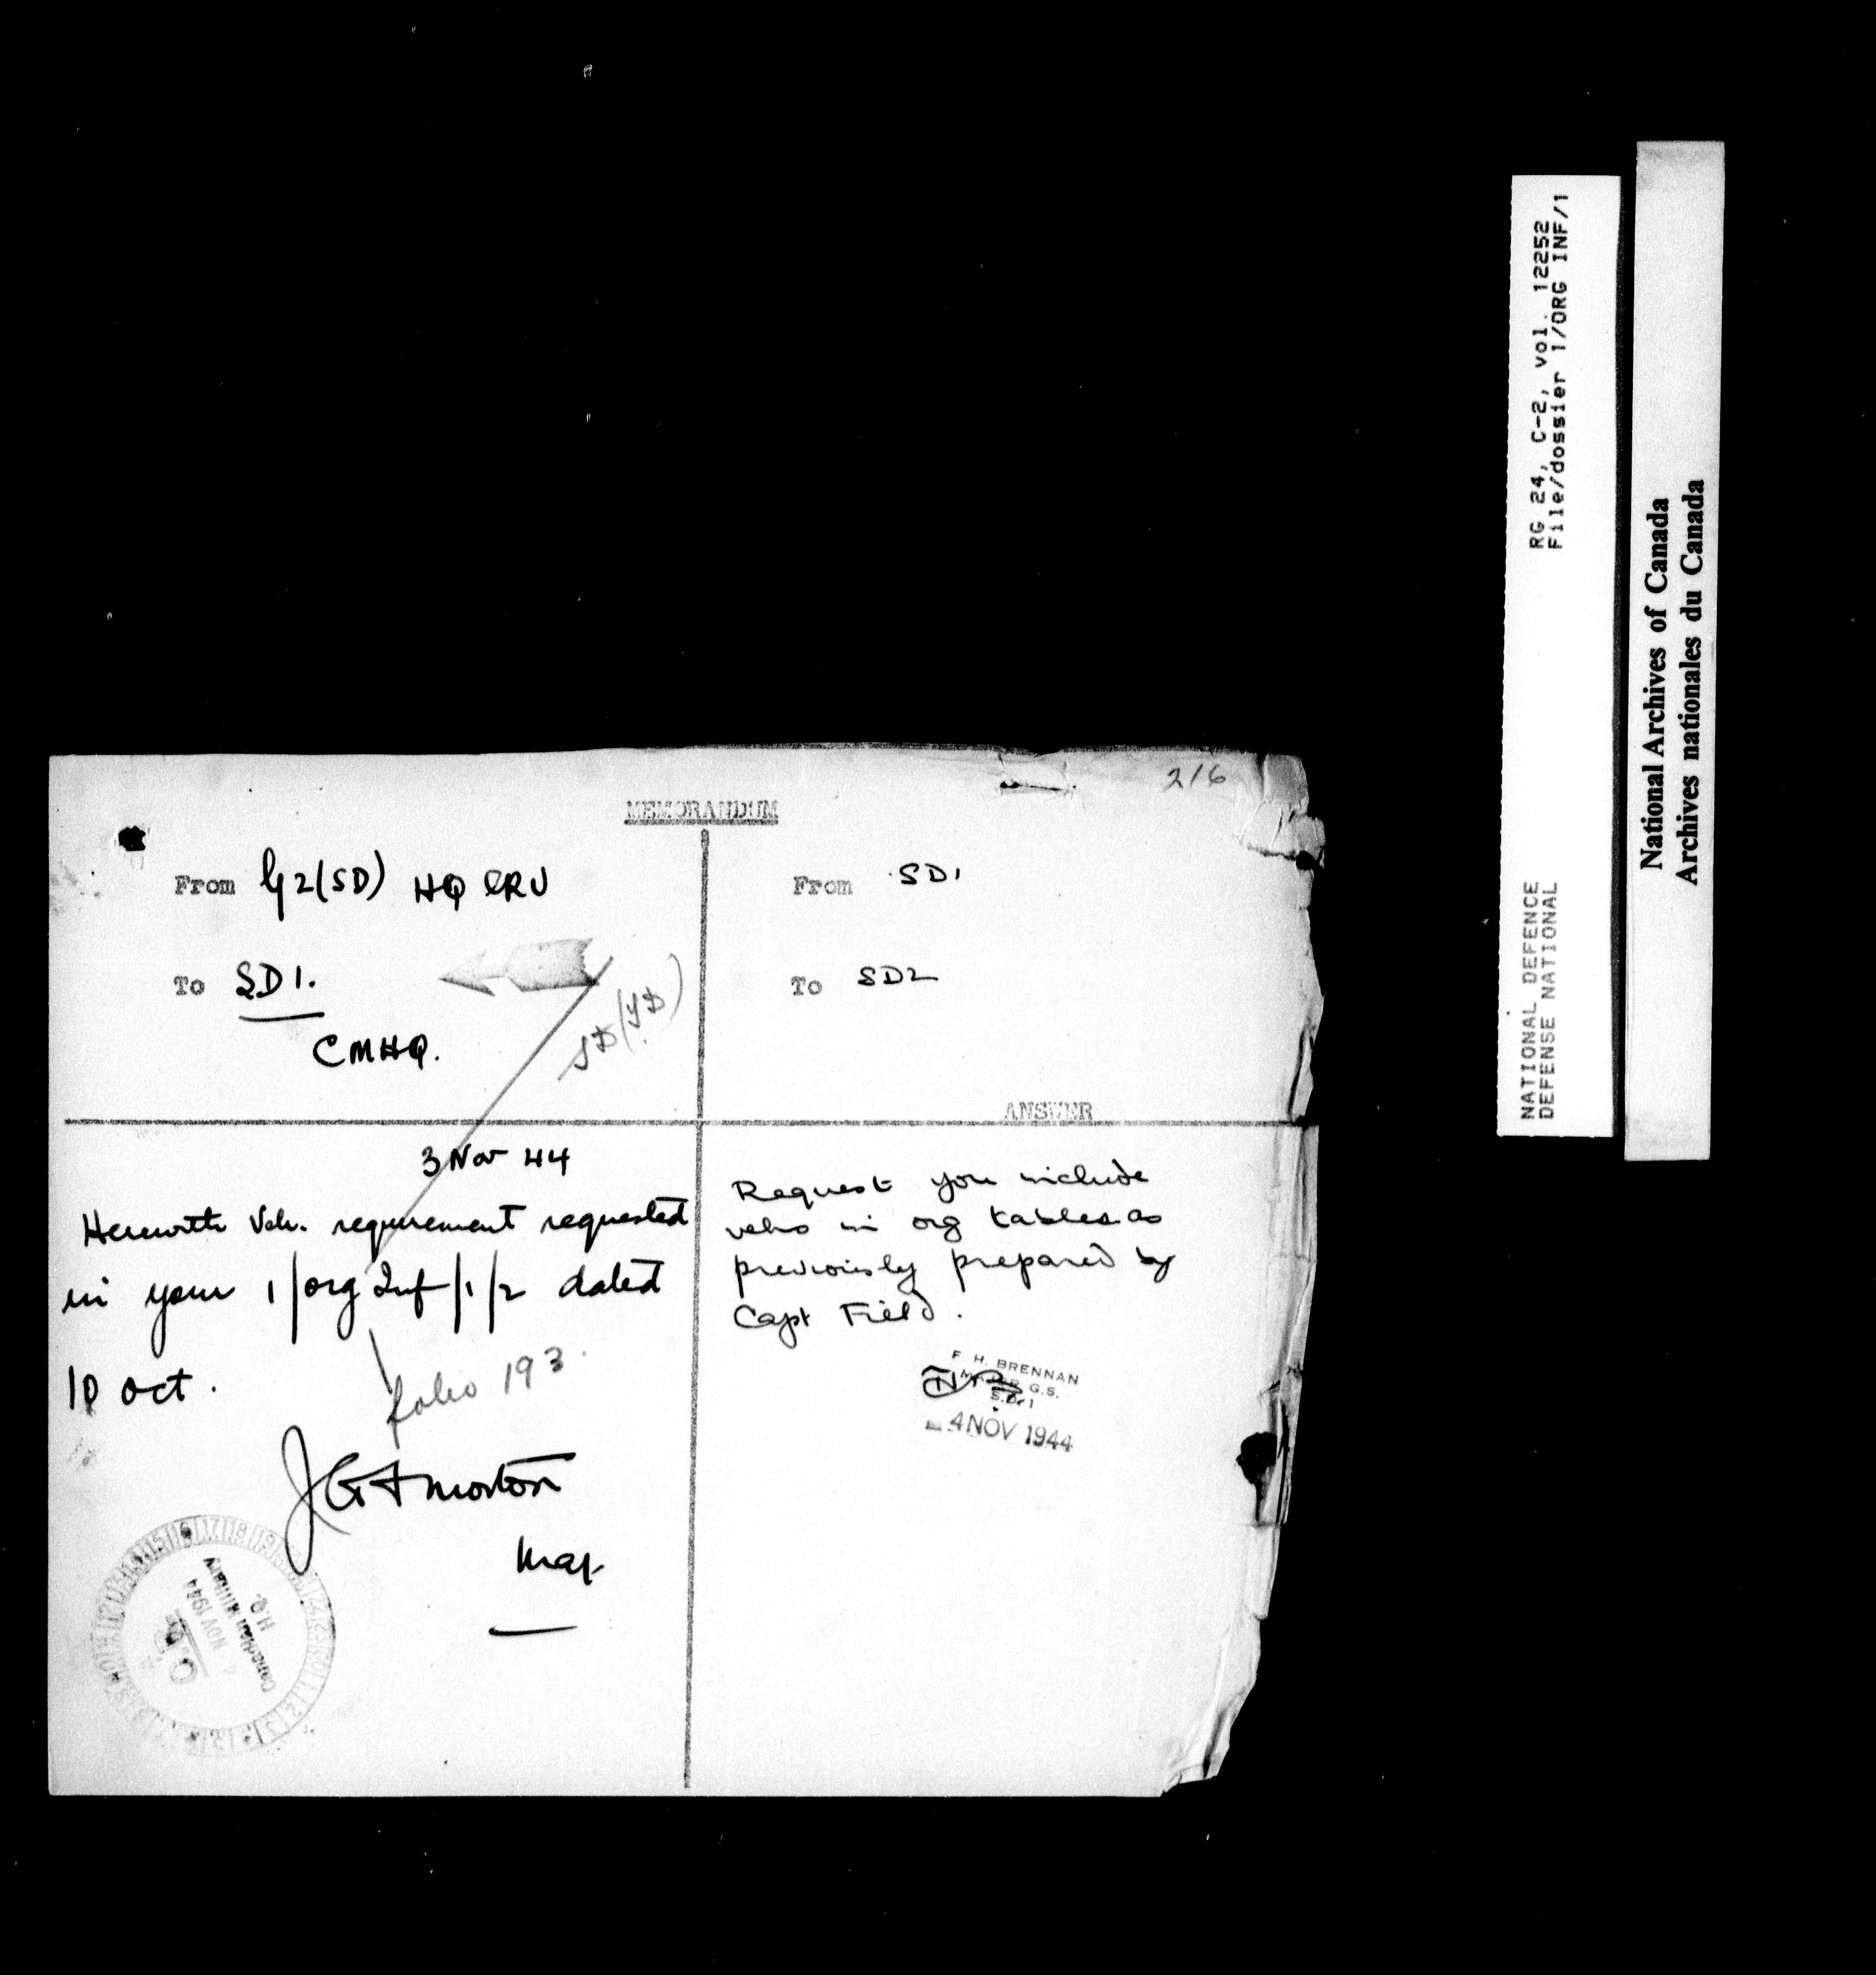 216
MEMORANDUM
From G2(SD) HQ CRU
To SD1.
CMHQ.
SD(
3 Nov 44
Herewith Veh. requirement requested
in your 1/Org Inf/1/2 dated
10 Oct.
folio 193.
Morton
Maj.
NOV 1944
Canadian Military
H.Q.
From SD1
To SD2
ANSWER
Request you include
vehs in org tables as
previously prepared by
Capt Field.
F. H. BRENNAN
MAJOR G.S.
S.D. 1
4 NOV 1944
RG 24, C-2, vol. 12252
File/dossier 1/ORG INF/1
NATIONAL DEFENCE
DEFENSE NATIONAL
National Archives of Canada
Archives nationales du Canada